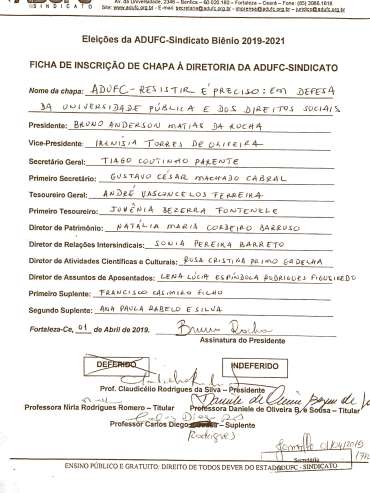 ADUFC
SINDICATO
Av. da Universidade, 2346 – Benfica – 60.020.180 – Fortaleza – Ceará – Fone: (85) 3066.1818
Site: www.adufc.org.br - E-mail: secretaria@adufc.org.br - imprensa@adufc.org.br – juridico@adufc.org.br
Eleições da ADUFC-Sindicato Biênio 2019-2021
FICHA DE INSCRIÇÃO DE CHAPA À DIRETORIA DA ADUFC-SINDICATO
Nome da chapa: ADUFC - RESISTIR É PRECISO: EM DEFESA
DA UNIVERSIDADE PÚBLICA E DOS DIREITOS SOCIAIS
Presidente: BRUNO ANDERSON MATIAS DA ROCHA
Vice-Presidente IRENÍSIA TORRES DE OLIVEIRA
Secretário Geral: TIAGO COUTINHO PARENTE
Primeiro Secretário: GUSTAVO CÉSAR MACHADO CABRAL
Tesoureiro Geral: ANDRÉ VASCONCELOS FERREIRA
Primeiro Tesoureiro: JUVÊNIA BEZERRA FONTENELE
Diretor de Patrimônio: NATÁLIA MARIA CORDEIRO BARROSO
Diretor de Relações Intersindicais: SONIA PEREIRA BARRETO
Diretor de Atividades Científicas e Culturais: ROSA CRISTINA PRIMO GADELHA
Diretor de Assuntos de Aposentados: LENA LÚCIA ESPÍNDOLA RODRIGUES FIGUEIREDO
Primeiro Suplente: FRANCISCO CASIMIRO FILHO
Segundo Suplente: ANA PAULA RABELO E SILVA
Fortaleza-Ce, 01 de Abril de 2019. Bruno Rocha
Assinatura do Presidente
DEFERIDO INDEFERIDO
Prof. Claudicélio Rodrigues da Silva – Presidente
Professora Nirla Rodrigues Romero – Titular Professora Daniele de Oliveira B. e Sousa – Titular
Professor Carlos Diego - Suplente
Rodrigues
Secretária
ENSINO PÚBLICO E GRATUITO: DIREITO DE TODOS DEVER DO ESTADO
ADUFC - SINDICATO